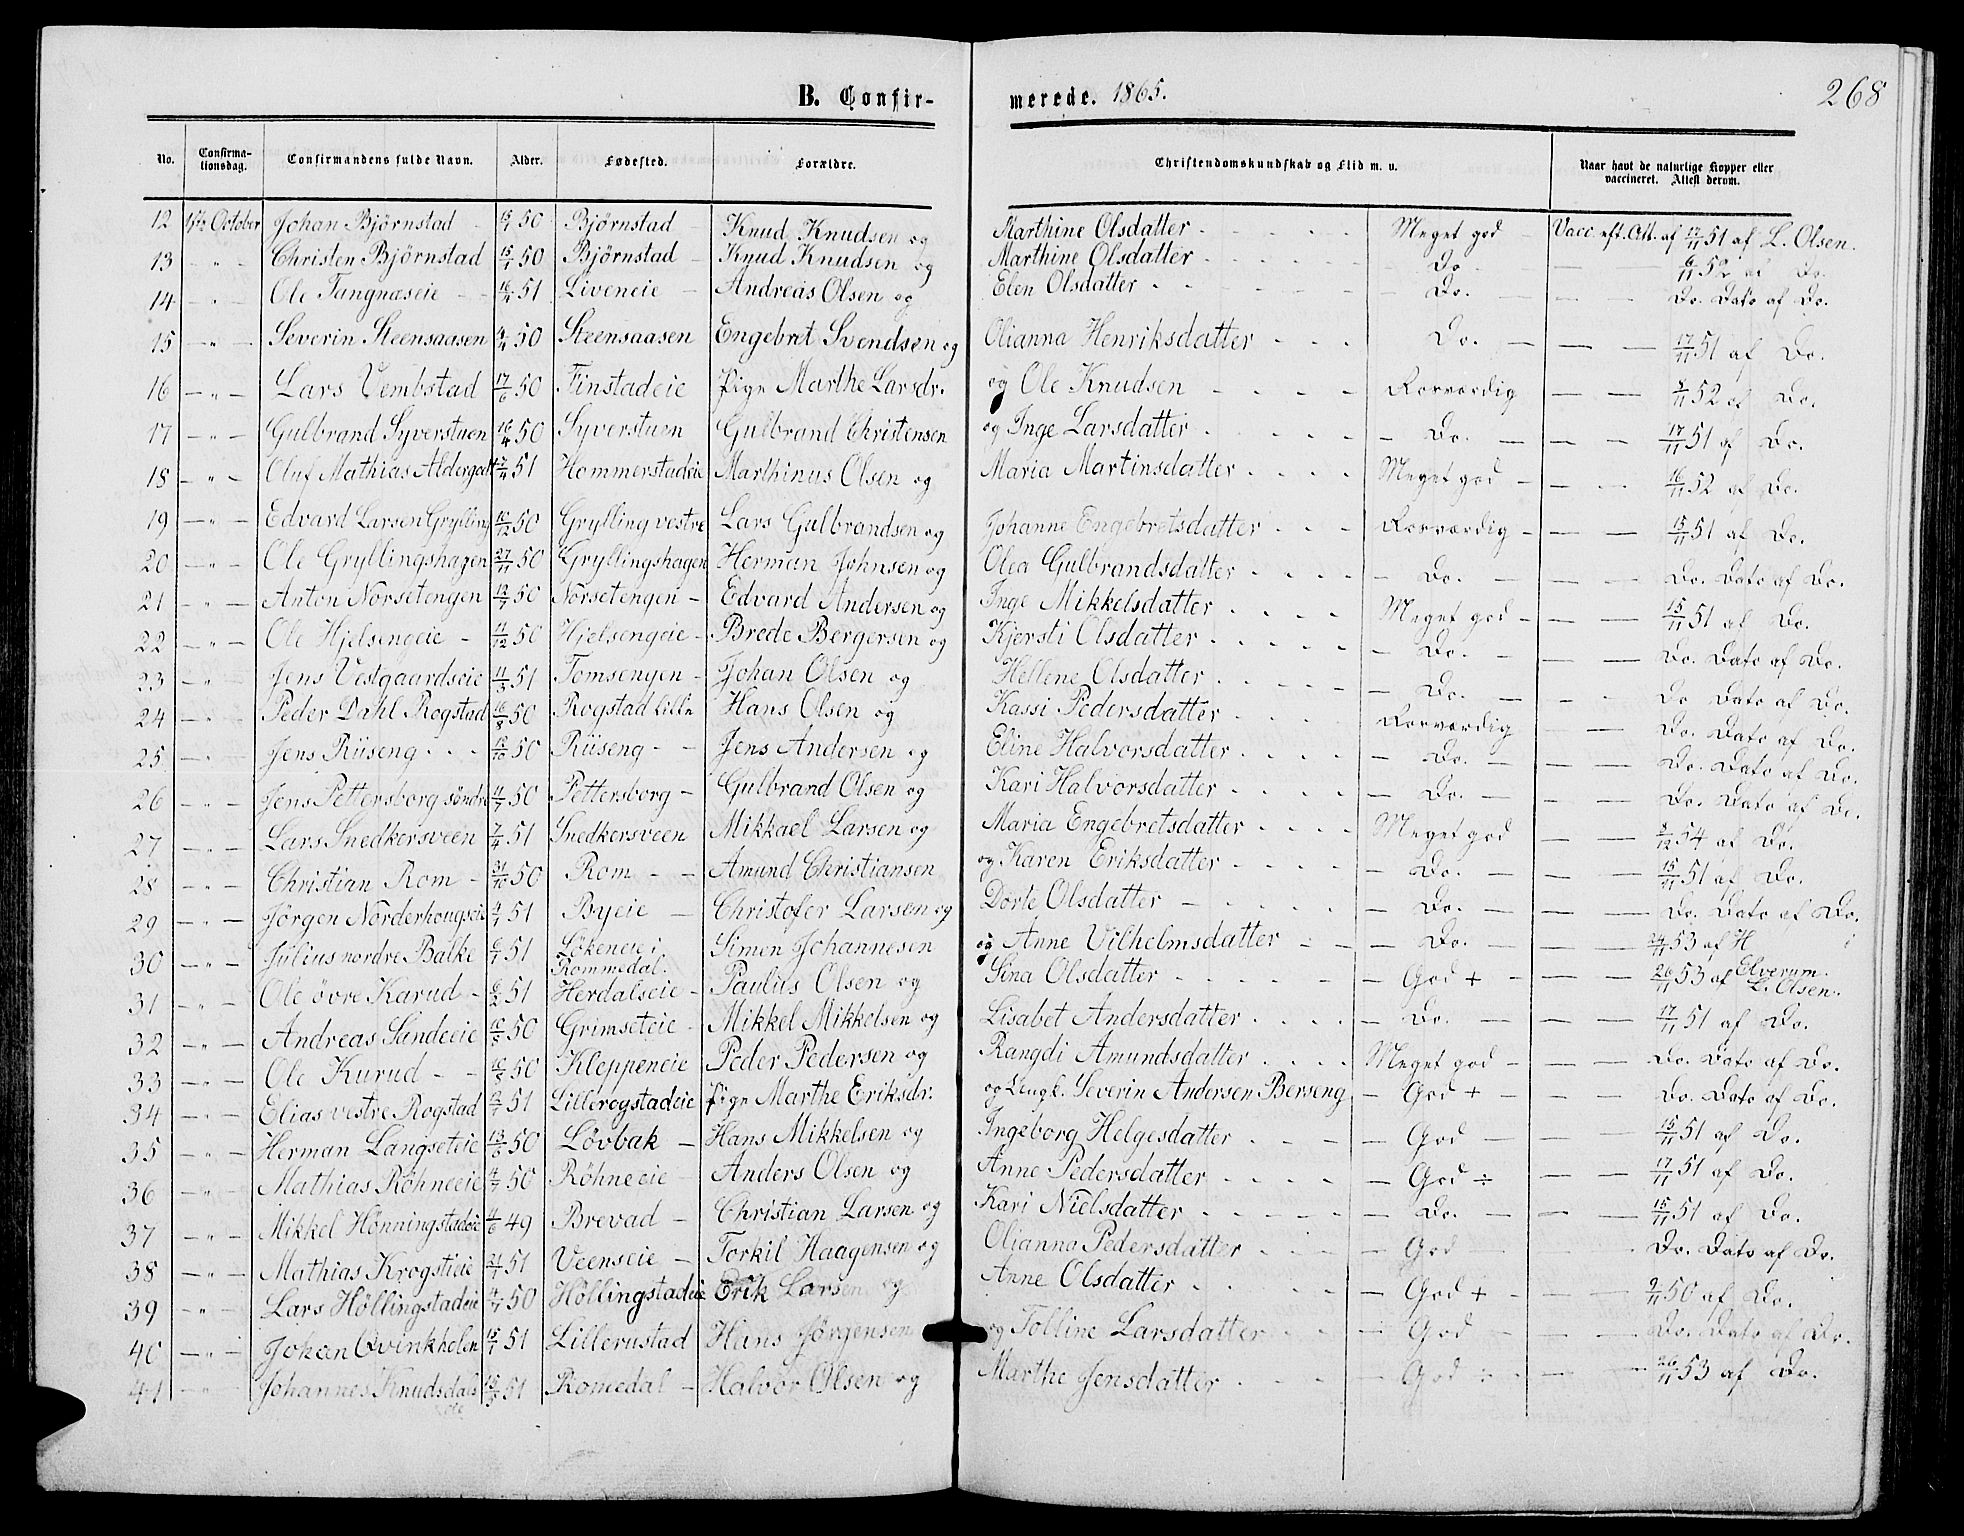 B. Confir-
merede. 1865.
268
No.
Confirma-
tionsdag.
Confirmandens fulde Navn.
Alder.
Fødested.
Forældre.
Christendomskundskab og Flid m. v.
Naar havt de naturlige Kopper eller
vaccineret. Attest derom.
12 October Johan Bjørnstad 50 Bjørnstad Knud Knudsen og Marthine Olsdatter Meget god Vacc. eft. Att. af 12/11 51 af L. Olsen.
13 Christen Bjørnstad 15/1 50 Bjørnstad Knud Knudsen og Marthine Olsdatter Do. 6/11 52 af Do.
14 Ole Tangnæseie 16/4 51 Liveneie Andreas Olsen og Elen Olsdatter Do. Do. Dato af Do.
15 Severin Steensaasen 50 Steensaasen Engebret Svendsen og Olianna Henriksdatter Do. 17/11 51 af Do.
16 Lars Vembstad 17/6 50 Finstadeie Pige Marthe Larsdr. og Ole Knudsen Rosværdig 8/11 52 af Do.
17 Gulbrand Syverstuen 16/4 50 Syverstuen Gulbrand Christensen og Inge Larsdatter Do. 17/11 51 af Do.
18 Oluf Mathias 51 Hommerstadeie Marthinus Olsen og Maria Martinsdatter Meget god 16/11 52 af Do.
19 Edvard Larsen Grylling 10/12 50 Grylling vestre Lars Gulbrandsen og Johanne Engebretsdatter Rosværdig 15/11 51 af Do.
20 Ole Gryllingshagen 27/11 50 Gryllingshagen Herman Johnsen og Olea Gulbrandsdatter Do. Do. Dato af Do.
21 Anton Norsetengen 50 Norsetengen Edvard Andersen og Inge Mikkelsdatter Meget god 15/11 51 af Do.
22 Ole Hjelsengeie 11/12 50 Hjelsengeie Brede Bergersen og Kjersti Olsdatter Do. Do. Dato af Do.
23 Jens Vestgaardseie 11/3 51 Tomsengen Johan Olsen og Hellene Olsdatter Do. Do Dato af Do.
24 Peder Dahl Rogstad 16/8 50 Rogstad lille Hans Olsen og Kassi Pedersdatter Rosværdig Do. Dato af Do.
25 Jens Riiseng 50 Riiseng Jens Andersen og Eline Halvorsdatter Do. Do. Dato af Do.
26 Jens Pettersborg søndre 50 Pettersborg Gulbrand Olsen og Kari Halvorsdatter Do. Do. Dato af Do.
27 Lars Snedkersveen 7/4 51 Snedkersveen Mikkael Larsen og Maria Engebretsdatter Meget god 8/12 54 af Do.
28 Christian Rom 31/10 50 Rom Amund Christiansen og Karen Eriksdatter Do. 15/11 51 af Do.
29 Jørgen Norderhougseie 51 Byeie Christofer Larsen og Dorte Olsdatter Do. Do. Dato af Do.
30 Julius nordre Balke 6/1 51 Løkeneie i
Rommedal. Simen Johannesen og Anne Vilhelmsdatter Do. 24/11 53 af H
Elverum.
31 Ole øvre Karud 6/2 51 Herdalseie Paulus Olsen og Sina Olsdatter God + 26/11 53 af L. Olsen.
32 Andreas Sandeeie 50 Grimseteie Mikkel Mikkelsen og Lisabet Andersdatter Do. 17/11 51 af Do.
33 Ole Kurud 16/8 50 Kleppeneie Peder Pedersen og Rangdi Amundsdatter Meget god Do. Dato af Do.
34 Elias vestre Rogstad 51 Lillerogstadeie Pige Marthe Eriksdr. og Ungk. Severin Andersen Berseng God + Do. Dato af Do.
35 Herman Langseteie 50 Løvbak Hans Mikkelsen og Ingeborg Helgesdatter God 15/11 51 af Do.
36 Mathias Røhneeie 50 Røhneeie Anders Olsen og Anne Pedersdatter God ÷ 17/11 51 af Do.
37 Mikkel Hønningstadeie 49 Brevad Christian Larsen og Kari Nielsdatter Do. 15/11 51 af Do.
38 Mathias Krogstieie 21/1 51 Veenseie Torkil Haagensen og Olianna Pedersdatter God Do. Dato af Do.
39 Lars Höllingstadeie 50 Höllingstadeie Erik Larsen og Anne Olsdatter God + 9/11 50 af Do.
40 Johan Qvinkholen 15/1 51 Lillerustad Hans Jørgensen og Tolline Larsdatter God Do. Dato af Do.
41 Johannes Knudsdals
eie 51 Romedal Halvor Olsen og Marthe Jensdatter God ÷ 26/11 53 af Do.